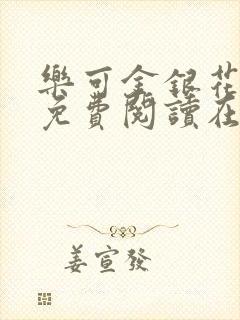 樂可金銀花
免費閱讀在
姜宣發